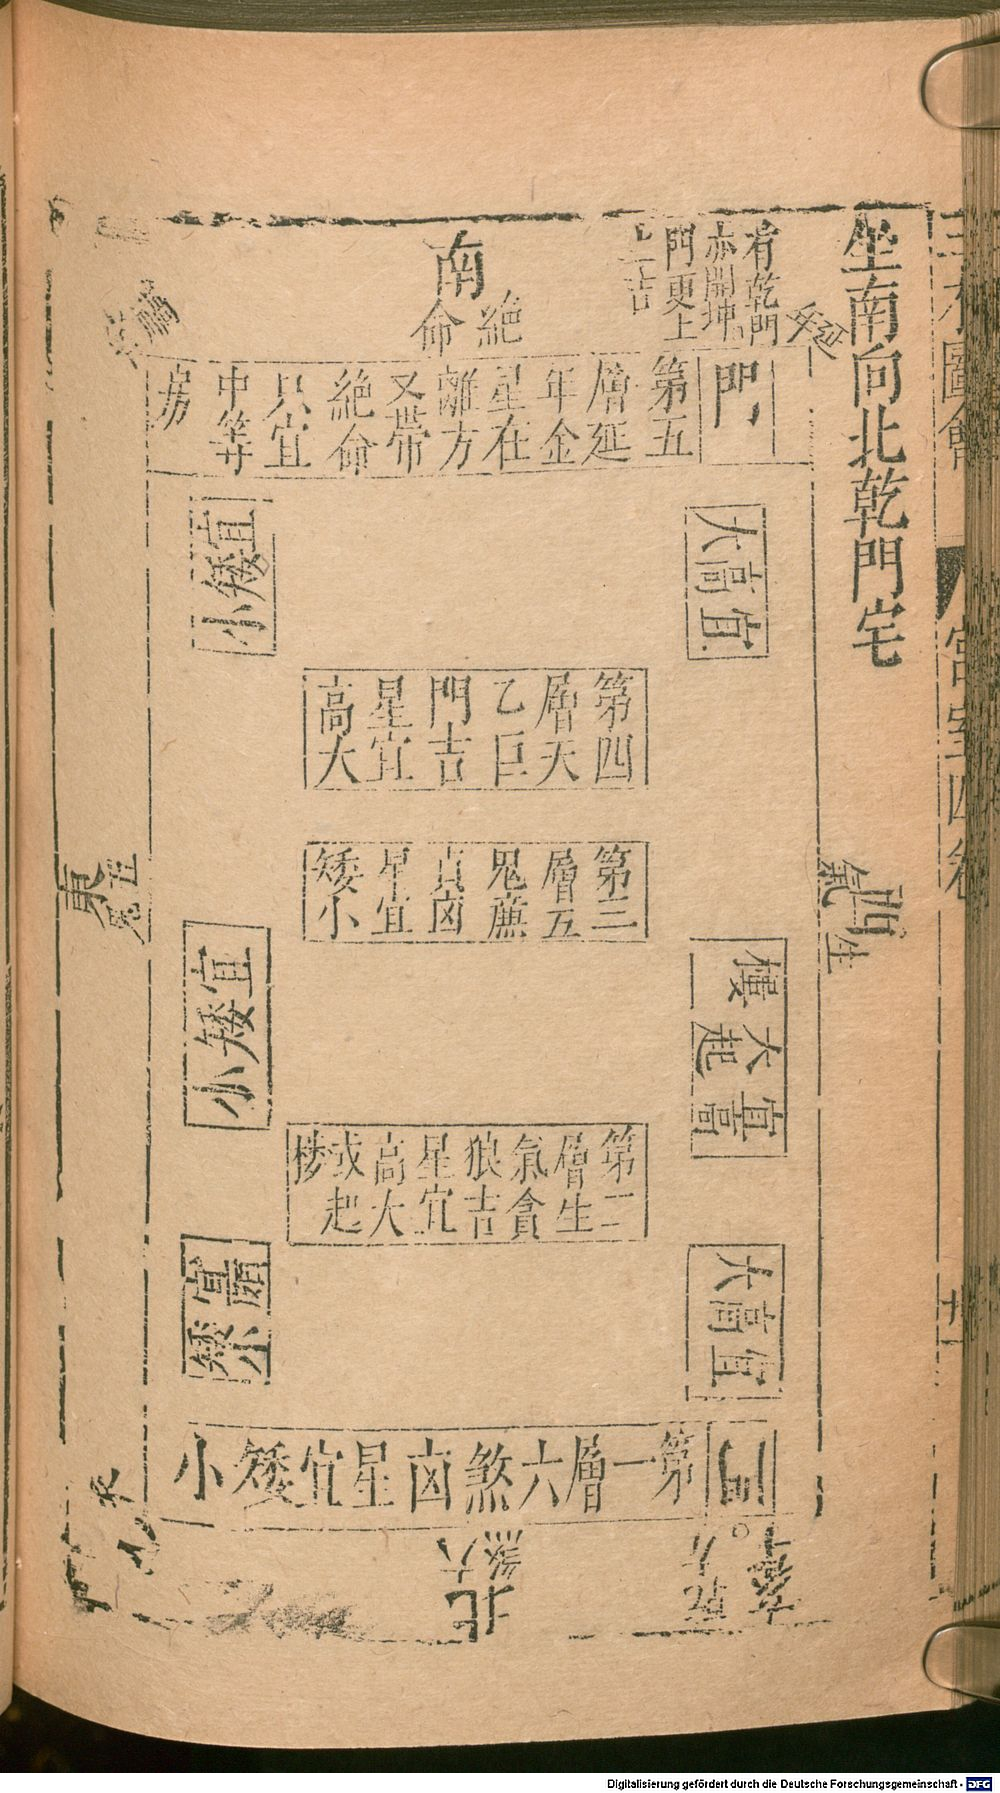 坐南向北乾門宅
有乾門
亦開坤
門更上
上吉
南
絕
命
門
第五
層延
年金
星在
離方
又帶
絕命
只宜
中等
房
宜高大
宜矮小
第四
層天
乙巨
門吉
星宜
高大
第三
層五
鬼廉
貞凶
星宜
矮小
西
生
氣
東
五
鬼
宜高
大起
樓
宜矮小
第二
層生
氣貪
狼吉
星宜
高大
或起
樓
宜高大
門
第一層六煞凶星宜矮小
北
六
煞
三才圖會
宮室四卷
Digitalisierung gefördert durch die Deutsche Forschungsgemeinschaft - DFG